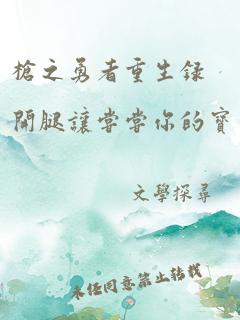 槍之勇者重生録
開腿讓嘗嘗你的寶
文學探尋
未经同意禁止转载